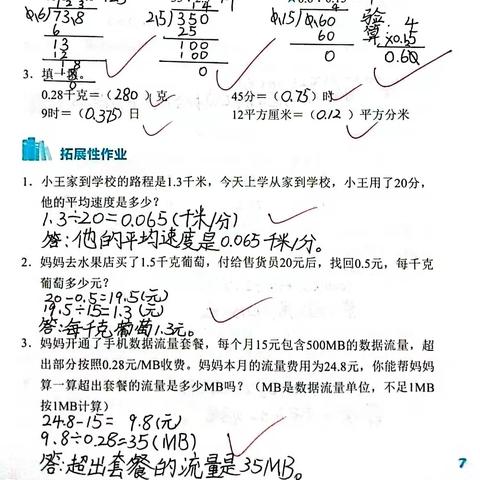 1 2 3
0.6)73.8
6
13
12
18
18
0
1 4
2.5)350
25
100
100
0
4
0.15)0.60
60
0
验算: 4
×0.15
0.60
3. 填一填。
0.28千克=(280)克 45分=(0.75)时
9时=(0.375)日 12平方厘米=(0.12)平方分米
拓展性作业
1. 小王家到学校的路程是1.3千米，今天上学从家到学校，小王用了20分，
他的平均速度是多少?
1.3÷20=0.065(千米/分)
答:他的平均速度是0.065千米/分。
2. 妈妈去水果店买了1.5千克葡萄，付给售货员20元后，找回0.5元，每千克
葡萄多少元?
20-0.5=19.5(元)
19.5÷15=1.3(元)
答:每千克葡萄1.3元。
3. 妈妈开通了手机数据流量套餐，每个月15元包含500MB的数据流量，超
出部分按照0.28元/MB收费。妈妈本月的流量费用为24.8元，你能帮妈妈
算一算超出套餐的流量是多少MB吗? (MB是数据流量单位，不足1MB
按1MB计算)
24.8-15= 9.8(元)
9.8÷0.28=35(MB)
答:超出套餐的流量是35MB。
7